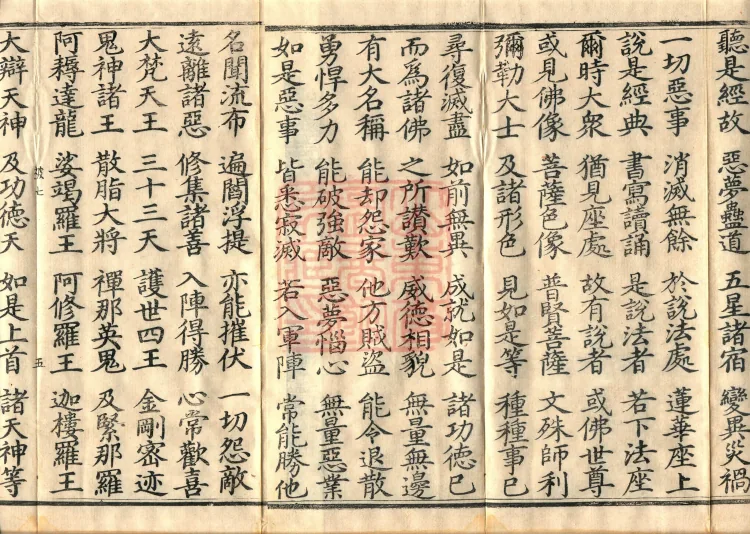 聽是經故 惡夢蠱道 五星諸宿 變異災禍
一切惡事 消滅無餘 於說法處 蓮華座上
說是經典 書寫讀誦 是說法者 若下法座
爾時大眾 猶見座處 故有說者 或佛世尊
或見佛像 菩薩色像 普賢菩薩 文殊師利
彌勒大士 及諸形色 見如是等 種種事已
尋復滅盡 如前無異 成就如是 諸功德已
而為諸佛 之所讚歎 威德相貌 無量無邊
有大名稱 能却怨家 他方賊盜 能令退散
勇悍多力 能破強敵 惡夢惱心 無量惡業
如是惡事 皆悉寂滅 若入軍陣 常能勝他
名聞流布 遍閻浮提 亦能摧伏 一切怨敵
遠離諸惡 修集諸善 入陣得勝 心常歡喜
大梵天王 三十三天 護世四王 金剛密迹
鬼神諸王 散脂大將 禪那英鬼 及緊那羅
阿耨達龍 娑竭羅王 阿修羅王 迦樓羅王
五
大辯天神 及功德天 如是上首 諸天神等